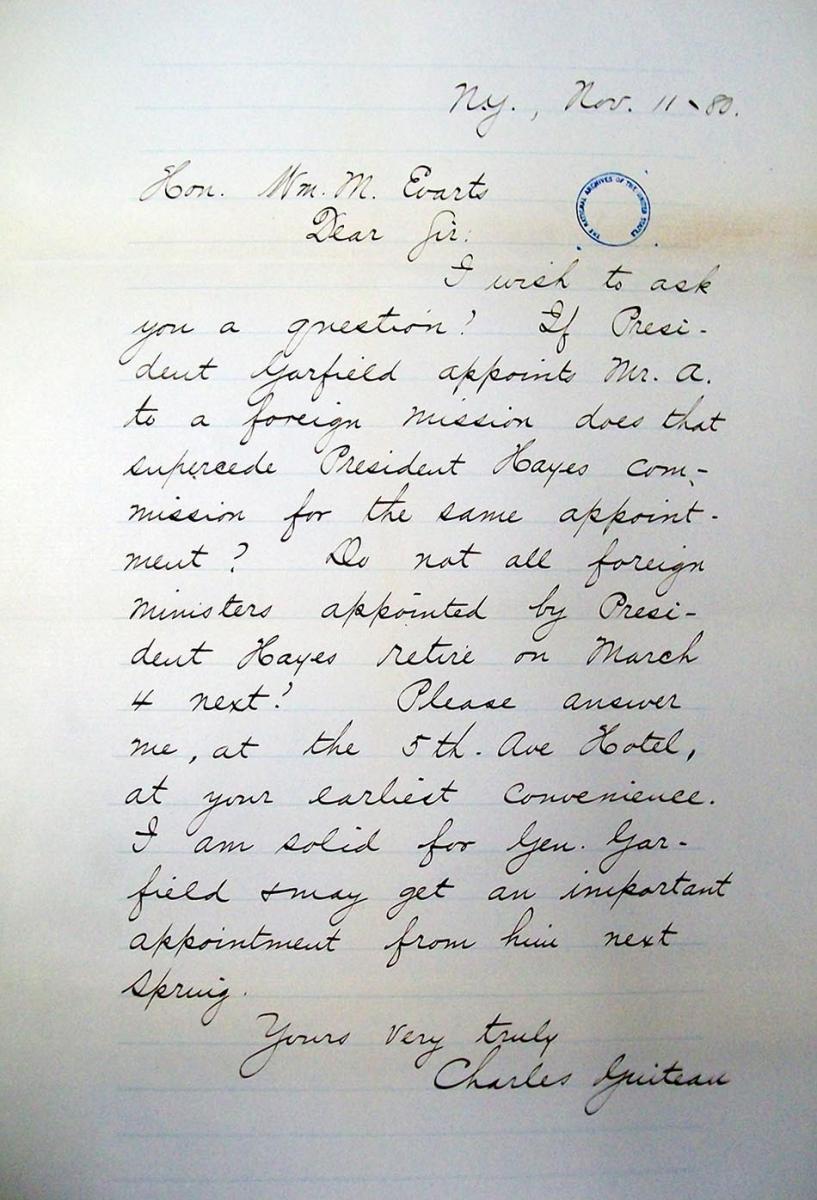 N.Y., Nov. 11-80.
Hon. Wm. M. Evarts
THE NATIONAL ARCHIVES OF THE UNITED STATES
Dear Sir:
I wish to ask
you a question? If Presi-
dent Garfield appoints Mr. A.
to a foreign mission does that
supercede President Hayes com-
mission for the same appoint-
ment? Do not all foreign
ministers appointed by Presi-
dent Hayes retire on March
4 next? Please answer
me, at the 5th. Ave Hotel,
at your earliest convenience.
I am solid for Gen. Gar-
field & may get an important
appointment from him next
spring.
Yours very truly
Charles Guiteau